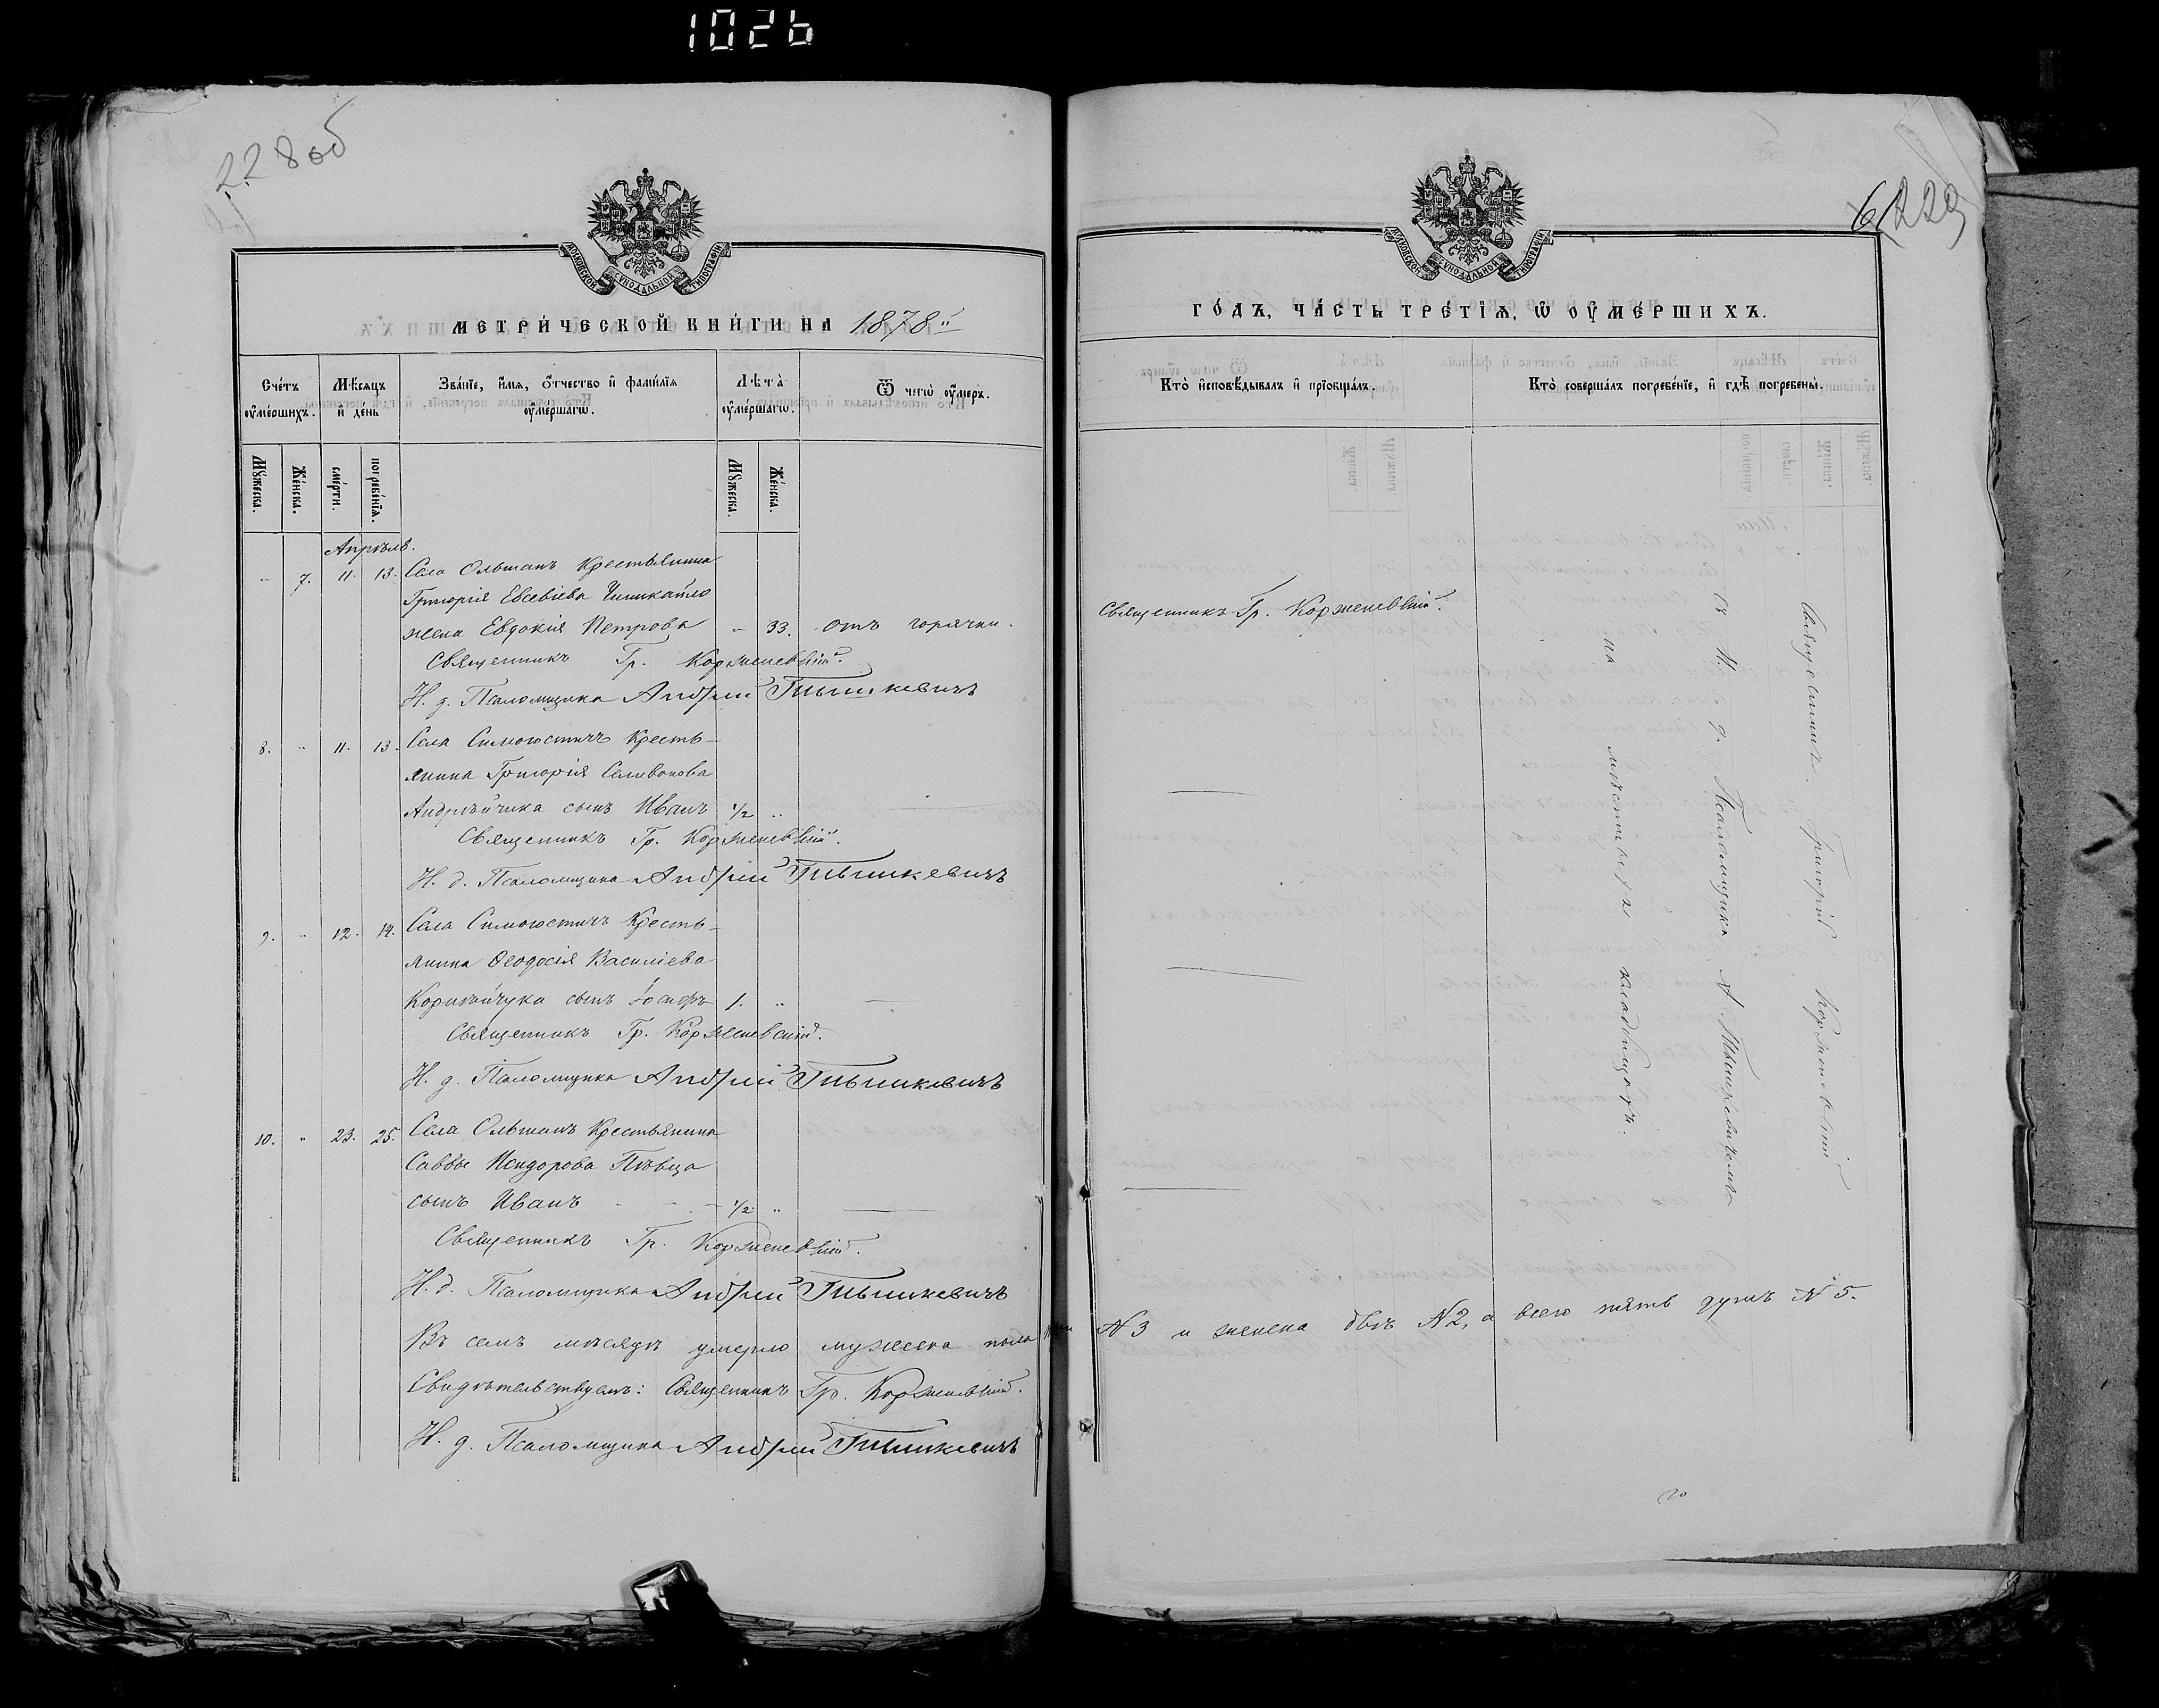 1026
228 об
МОСКОВСКОЙ СУНОДАЛЬНОЙ ТИПОГРАФІИ
МЕТРИ́ЧЕСКОЙ КНИ́ГИ НА 1878 й
Сче́тъ оумершихъ.
Мѣсяцъ и де́нь
Зва́нїе, и́мя, о́тчество и фами́лїя оуме́ршагѡ.
Лѣта̀ оуме́ршагѡ.
Ѿ чегѡ̀ оу́меръ.
Мꙋ́жеска.
Же́нска.
сме́рти.
погребе́нїя.
Мꙋ́жеска.
Же́нска.
Апрѣль.
„ 7. 11. 13. Села Ольшанъ Крестьянина
Григорія Евсевіева
жена Евдокія Петрова „ 33. отъ горячки.
Священникъ Гр. Корженевскій.
И. д. Псаломщика Андрей Гнышкевичъ
8. „ 11. 13. Села Симоностичъ Кресть-
янина Григорія Селивонова
Андрѣйчика сынъ Иванъ 1/2 „
Священникъ Гр. Корженевскій.
И. д. Псаломщика Андрей Гнышкевичъ
9. „ 12. 14. Села Симоностичъ Кресть-
янина Ѳеодосія Василіева
Корнѣйчука сынъ Іосифъ 1. „ —
Священникъ Гр. Корженевскій.
И. д. Псаломщика Андрей Гнышкевичъ
10. „ 23. 25. Села Ольшанъ Крестьянина
Саввы Исидорова Пѣвца
сынъ Иванъ - - - 1/2 „ —
Священникъ Гр. Корженевскій.
И. д. Псаломщика Андрей Гнышкевичъ
Въ семъ мѣсяцѣ умерло мужеска пола
Свидѣтельствуемъ: Священникъ Гр. Корженевскій.
И. д. Псаломщика Андрей Гнышкевичъ
229
МОСКОВСКОЙ СУНОДАЛЬНОЙ ТИПОГРАФІИ
ГО́ДЪ, ЧА́СТЬ ТРЕ́ТЇѦ, Ѡ ОУМЕ́РШИХЪ.
Кто̀ исповѣ́дывалъ и прїобща́лъ.
Кто̀ соверша́лъ погребе́нїе, и гдѣ̀ погребены̀.
Священникъ Гр. Корженевскій.
Священникъ Григорій Корженевскій
съ И. д. Псаломщика А. Гнышкевичемъ
на мѣстныхъ кладбищахъ.
№ 3 и женска двѣ № 2, а всего пять душъ № 5.